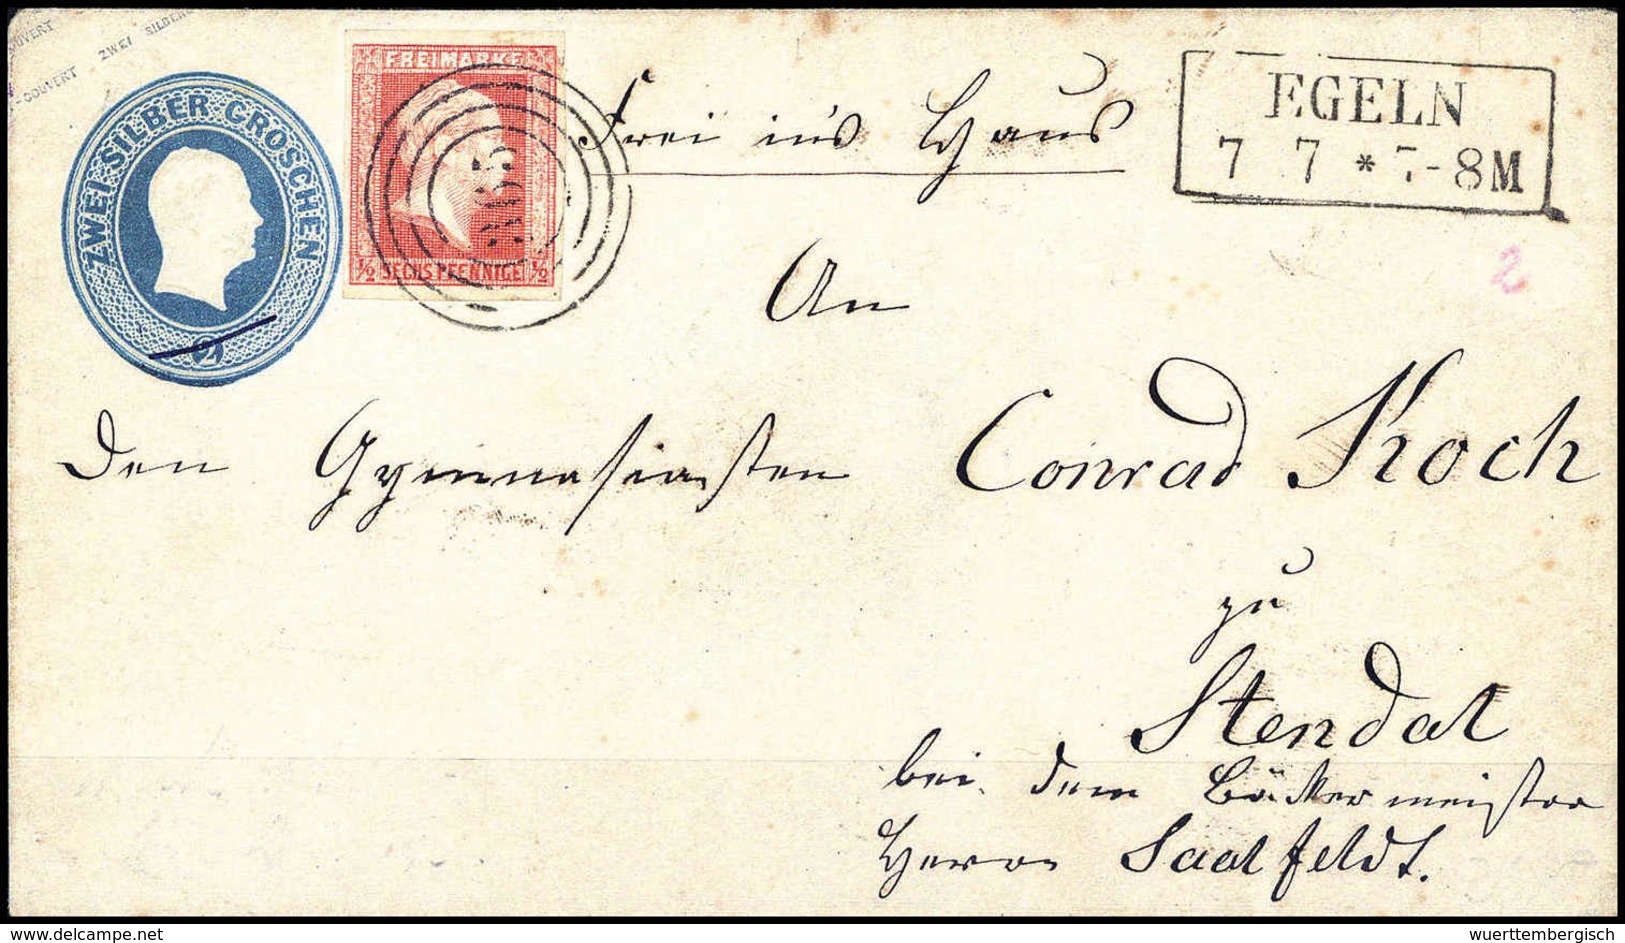 COUVERT ZWEI SILBERG
-COUVERT
ZWEI SILBER GROSCHEN
2
FREIMARKE
½ SECHS PFENNIGE ½
365
Frei in's Haus
EGELN
7 7 * 7-8M
2
An
Den Gymnasiasten Conrad Koch
zu
Stendal
bei dem Bäckermeister
Herrn Saalfeldt.
www.delcampe.net
wuerttembergisch